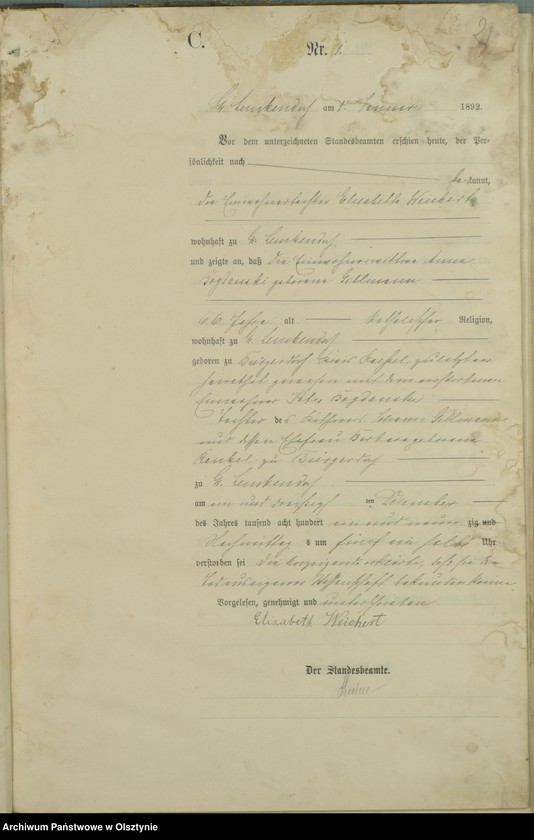 2
C.
Nr. 1.
Gr. Lemkendorf am 1. Januar 1892.
Vor dem unterzeichneten Standesbeamten erschien heute, der Per-
sönlichkeit nach
be kannt,
die Einwohnertochter Elisabeth Weichert
wohnhaft zu Gr. Lemkendorf
und zeigte an, daß die Einwohnerwittwe Anna
geborene Gollmann
66 Jahre alt katholischer Religion,
wohnhaft zu Gr. Lemkendorf
geboren zu Bürgerdorf Kreis Roessel, zuletzt ver
heirathet gewesen mit dem verstorbenen
Einwohner Peter
Tochter des
und dessen Ehefrau Barbara geborene
zu Bürgerdorf
zu Gr. Lemkendorf
am ein und dreißigsten Dezember
des Jahres tausend acht hundert ein und neun zig und
Nachmittag s um fünf ein halb Uhr
verstorben sei
Vorgelesen, genehmigt und unterschrieben
Elisabeth Weichert
Der Standesbeamte.
Archiwum Państwowe w Olsztynie